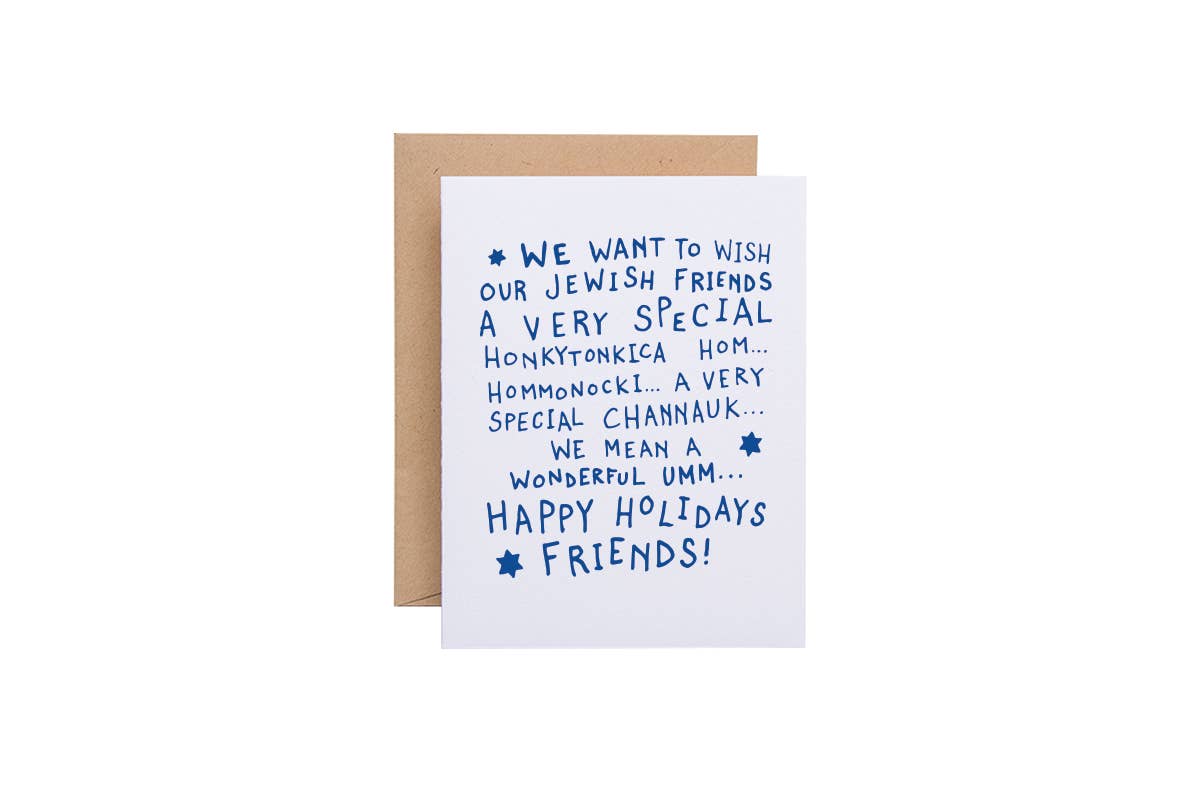 WE WANT TO WISH
OUR JEWISH FRIENDS
A VERY SPECIAL
HONKYTONKICA HOM...
HOMMONOCKI... A VERY
SPECIAL CHANNAUK...
WE MEAN A
WONDERFUL UMM...
HAPPY HOLIDAYS
FRIENDS!